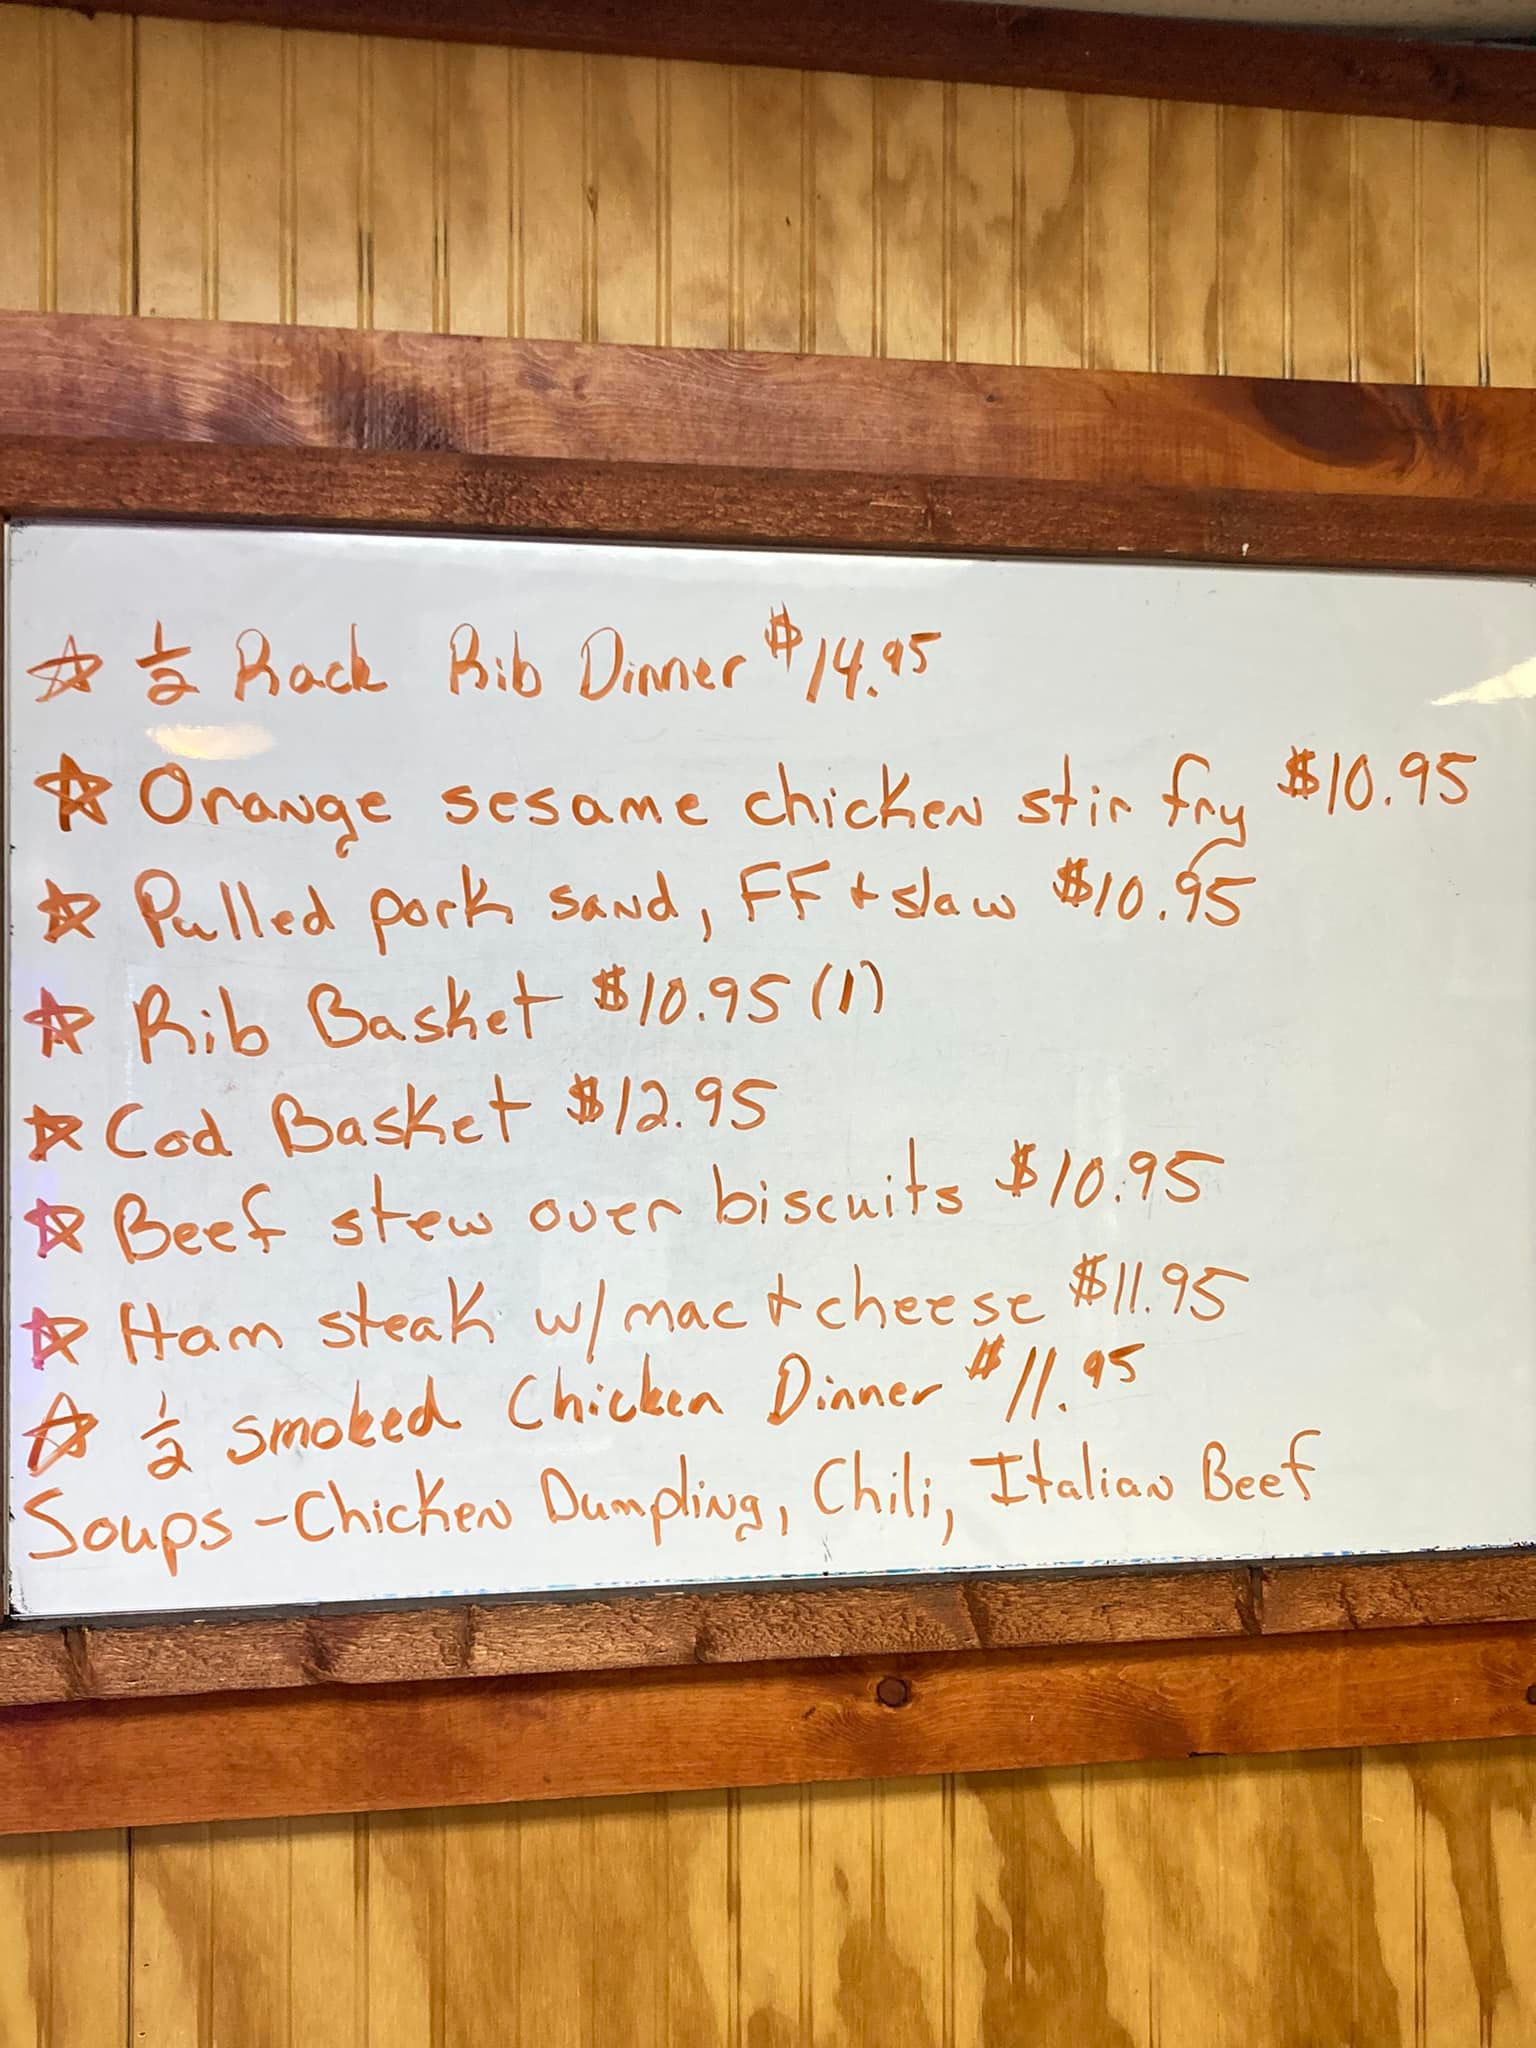 ☆ 1/2 Rack Rib Dinner $14.95
☆ Orange sesame chicken stir fry $10.95
☆ Pulled pork sand, FF + slaw $10.95
☆ Rib Basket $10.95 (1)
☆ Cod Basket $12.95
☆ Beef stew over biscuits $10.95
☆ Ham steak w/ mac + cheese $11.95
☆ 1/2 smoked Chicken Dinner $11.95
Soups - Chicken Dumpling, Chili, Italian Beef